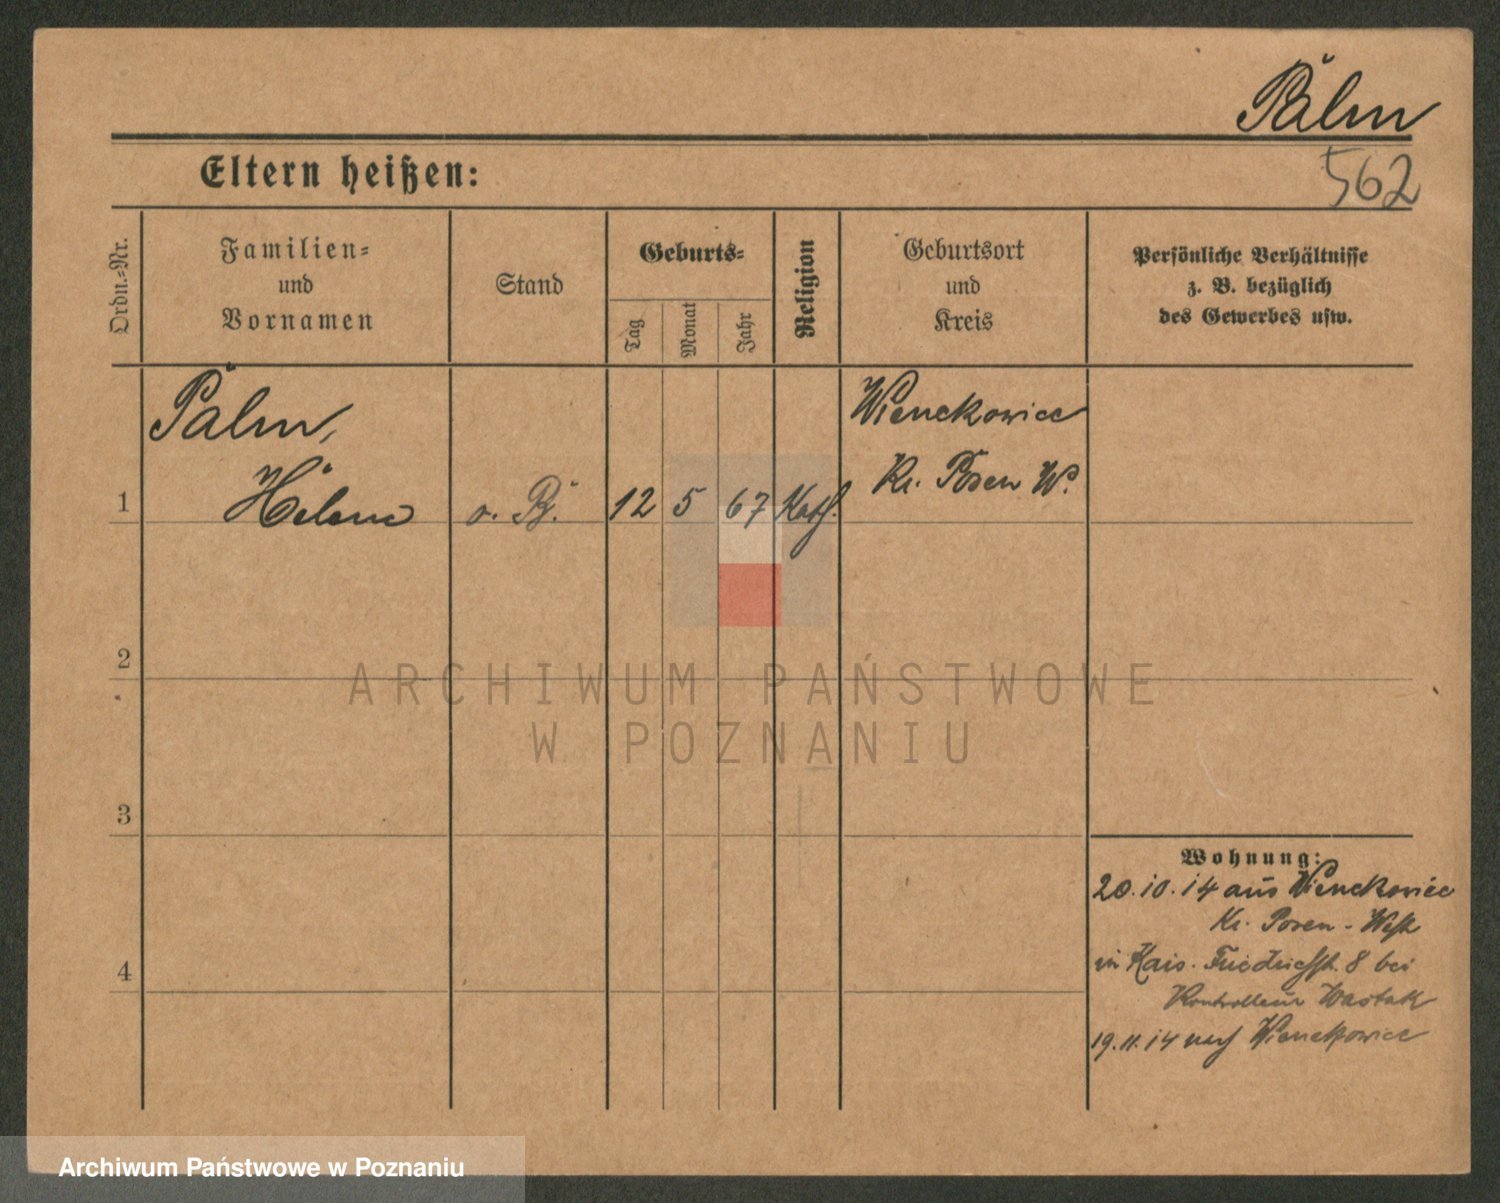 Palm
562
Eltern heißen:
Ordn.-Nr.
Familien-
und
Vornamen
Stand
Geburts-
Tag
Monat
Jahr
Religion
Geburtsort
und
Kreis
Persönliche Verhältnisse
z. B. bezüglich
des Gewerbes usw.
Palm,
Helene
o. B.
12 5 67 Kath.
Wienckowice
Kr. Posen W.
1
2
3
4
Wohnung:
20.10.14 aus Wienckowice
Kr. Posen-West
in Kais. Friedrichstr. 8 bei
Kontrolleur
19.11.14 nach Wienckowice
ARCHIWUM PAŃSTWOWE
W POZNANIU
Archiwum Państwowe w Poznaniu